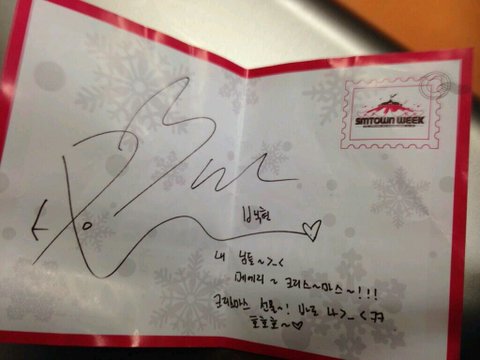 SMTOWN WEEK
백현
내 님들~>_<
메에리~ 크리스~마스~!!!
크리마스 선물~! 바로 나>_<ㅋㅋ
호호호~♡